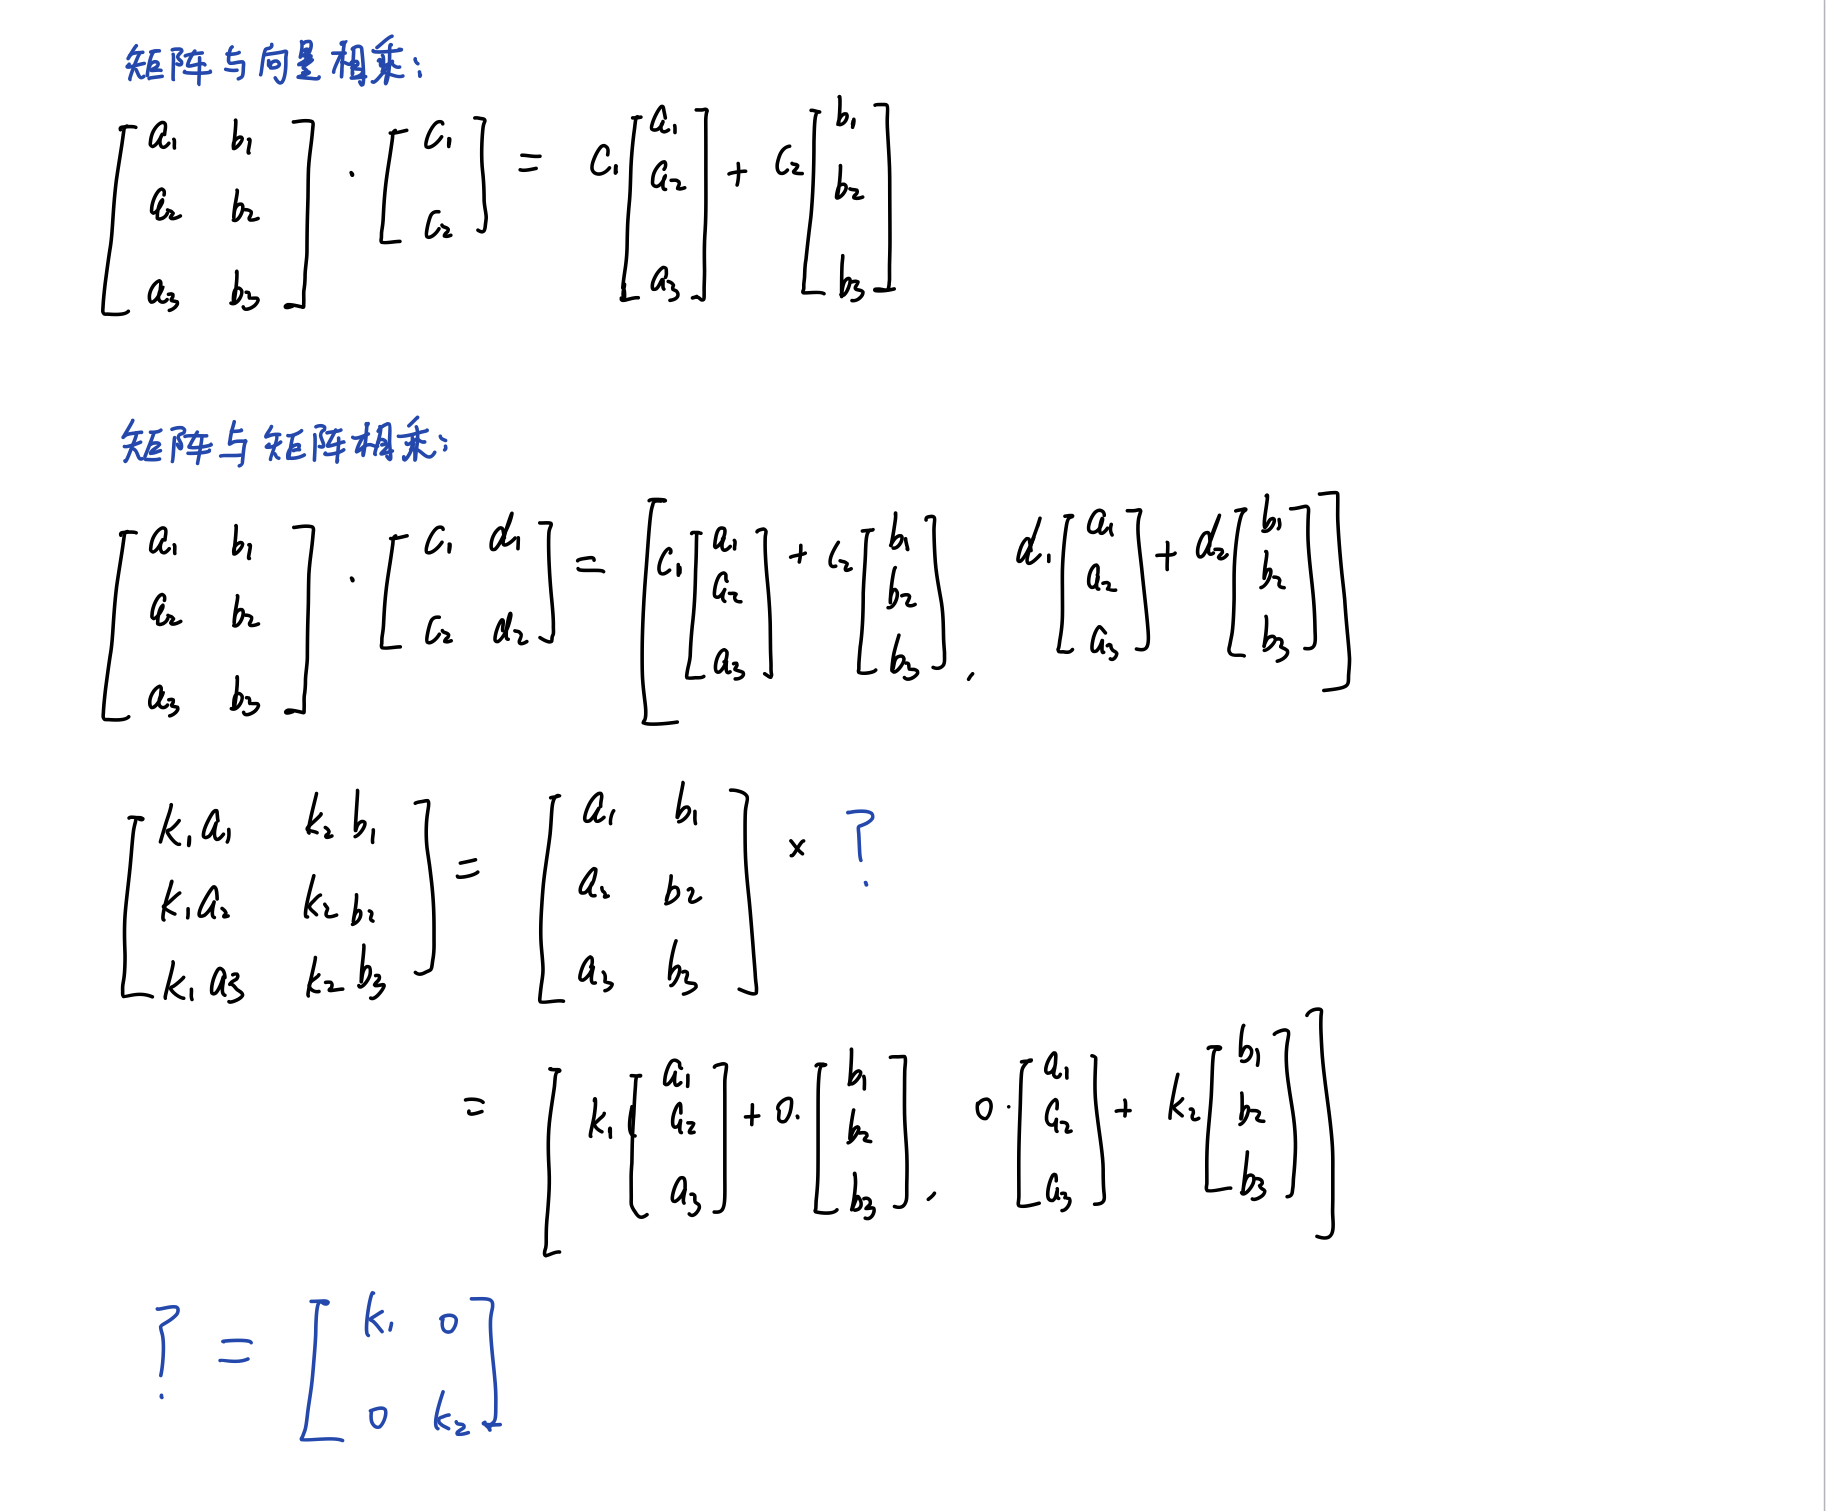 矩阵与向量相乘:
[a₁ b₁; a₂ b₂; a₃ b₃] · [c₁; c₂] = c₁[a₁; a₂; a₃] + c₂[b₁; b₂; b₃]
矩阵与矩阵相乘:
[a₁ b₁; a₂ b₂; a₃ b₃] · [c₁ d₁; c₂ d₂] = [c₁[a₁; a₂; a₃] + c₂[b₁; b₂; b₃], d₁[a₁; a₂; a₃] + d₂[b₁; b₂; b₃]]
[k₁a₁ k₂b₁; k₁a₂ k₂b₂; k₁a₃ k₂b₃] = [a₁ b₁; a₂ b₂; a₃ b₃] × ?
= [k₁[a₁; a₂; a₃] + 0·[b₁; b₂; b₃], 0·[a₁; a₂; a₃] + k₂[b₁; b₂; b₃]]
? = [k₁ 0; 0 k₂]